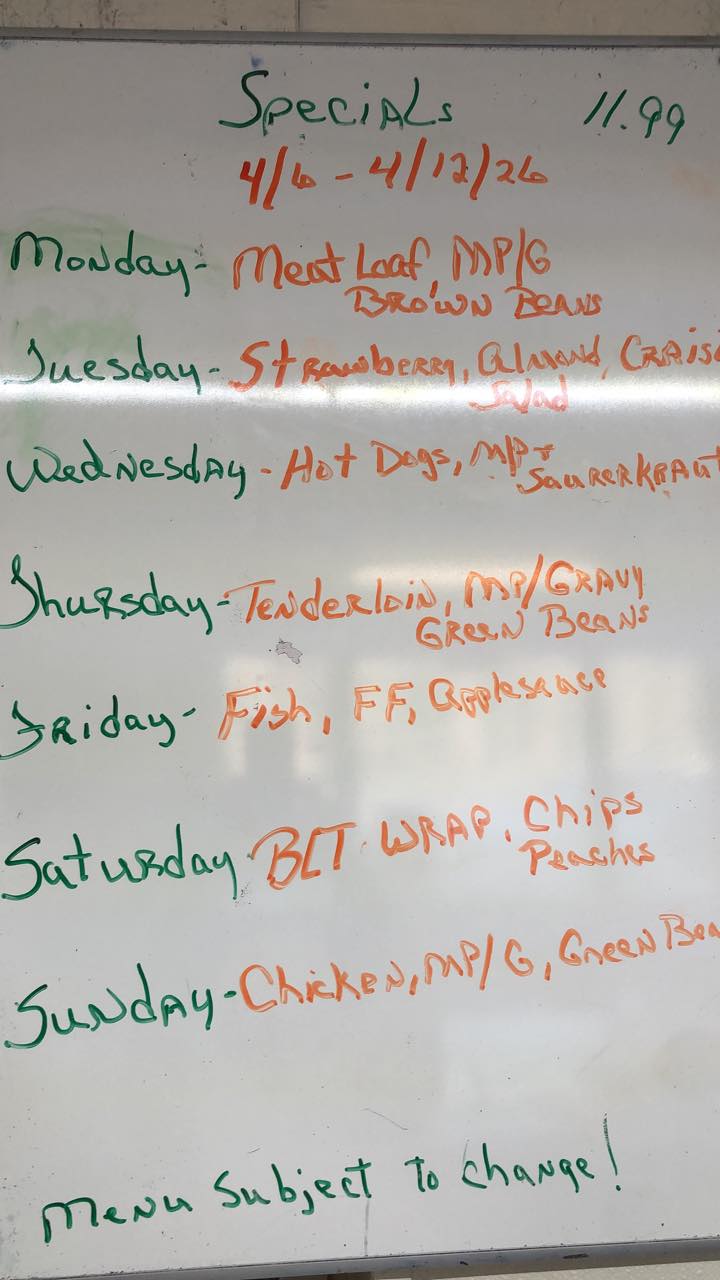 Specials 11.99
4/6 - 4/12/26
Monday- Meat Loaf, MP/G
Brown Beans
Tuesday- Strawberry, Almond, Crais
Salad
Wednesday - Hot Dogs, MP +
Saurerkraut
Thursday- Tenderloin, MP/Gravy
Green Beans
Friday- Fish, FF, Applesauce
Saturday BLT WRAP, Chips
Peaches
Sunday- Chicken, MP/G, Green Bea
Menu Subject to change!